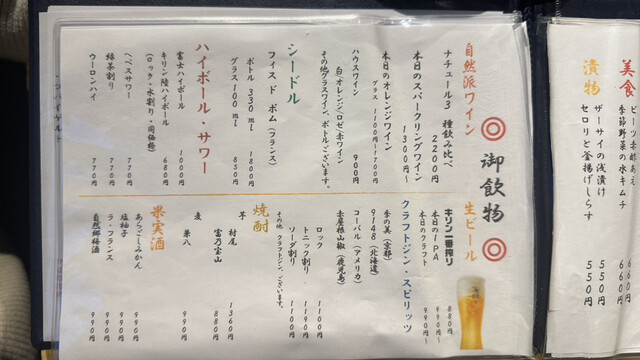 美食
ビーツ赤酢あえ 660円
季節野菜の水キムチ 660円
漬物
ザーサイの浅漬け 550円
セロリと釜揚げしらす 550円
◎御飲物◎
自然派ワイン
ナチュール3種飲み比べ 2200円
本日のスパークリングワイン 1300円〜
本日のオレンジワイン
グラス 1100円〜1700円
ハウスワイン
白/オレンジ/ロゼ/赤ワイン 900円
その他グラスワイン、ボトルございます。
シードル
フィズ ド ボム (フランス)
ボトル 330ml 1800円
グラス 100ml 850円
ハイボール・サワー
富士ハイボール 1000円
キリン陸ハイボール 680円
(ロック・水割り・同価格)
ヘベスサワー 770円
緑茶割り 770円
ウーロンハイ 770円
生ビール
キリン一番搾り 880円
本日のIPA 990円〜
本日のクラフト 990円〜
クラフトジン・スピリッツ
季の美 (京都)
9148 (北海道)
コーバル (アメリカ)
赤屋根山椒 (鹿児島)
ロック 1100円
トニック割り 1190円
ソーダ割り 1100円
その他、クラフトジン、ございます。
焼酎
芋
村尾 1360円
富乃宝山 880円
麦
兼八 990円
果実酒
あらごしみかん 990円
塩柚子 990円
ラ・フランス 990円
自然郷梅酒 990円